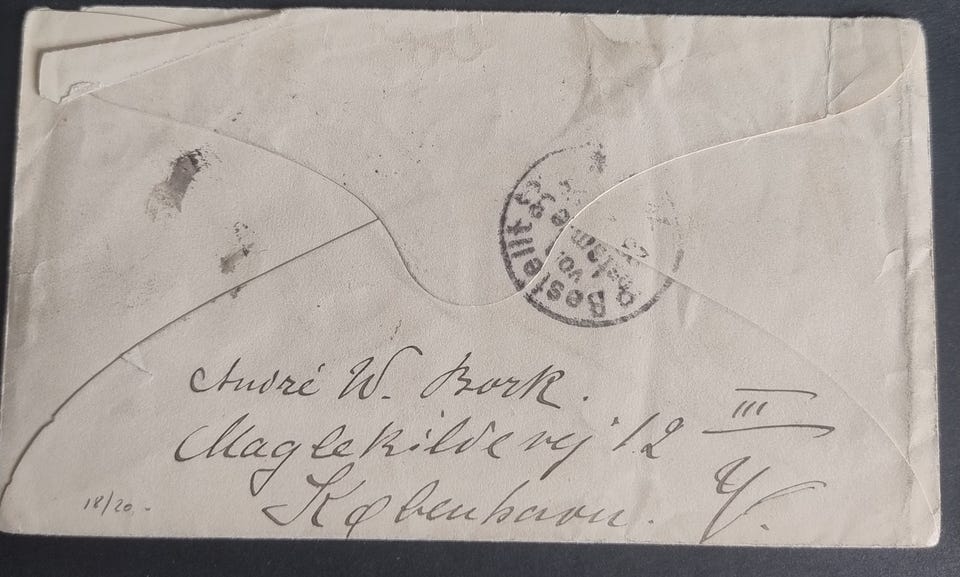 Bestellt
vo.
Postamte
André W. Bork.
Maglekildevej 12 III
København. V.
18/20.-